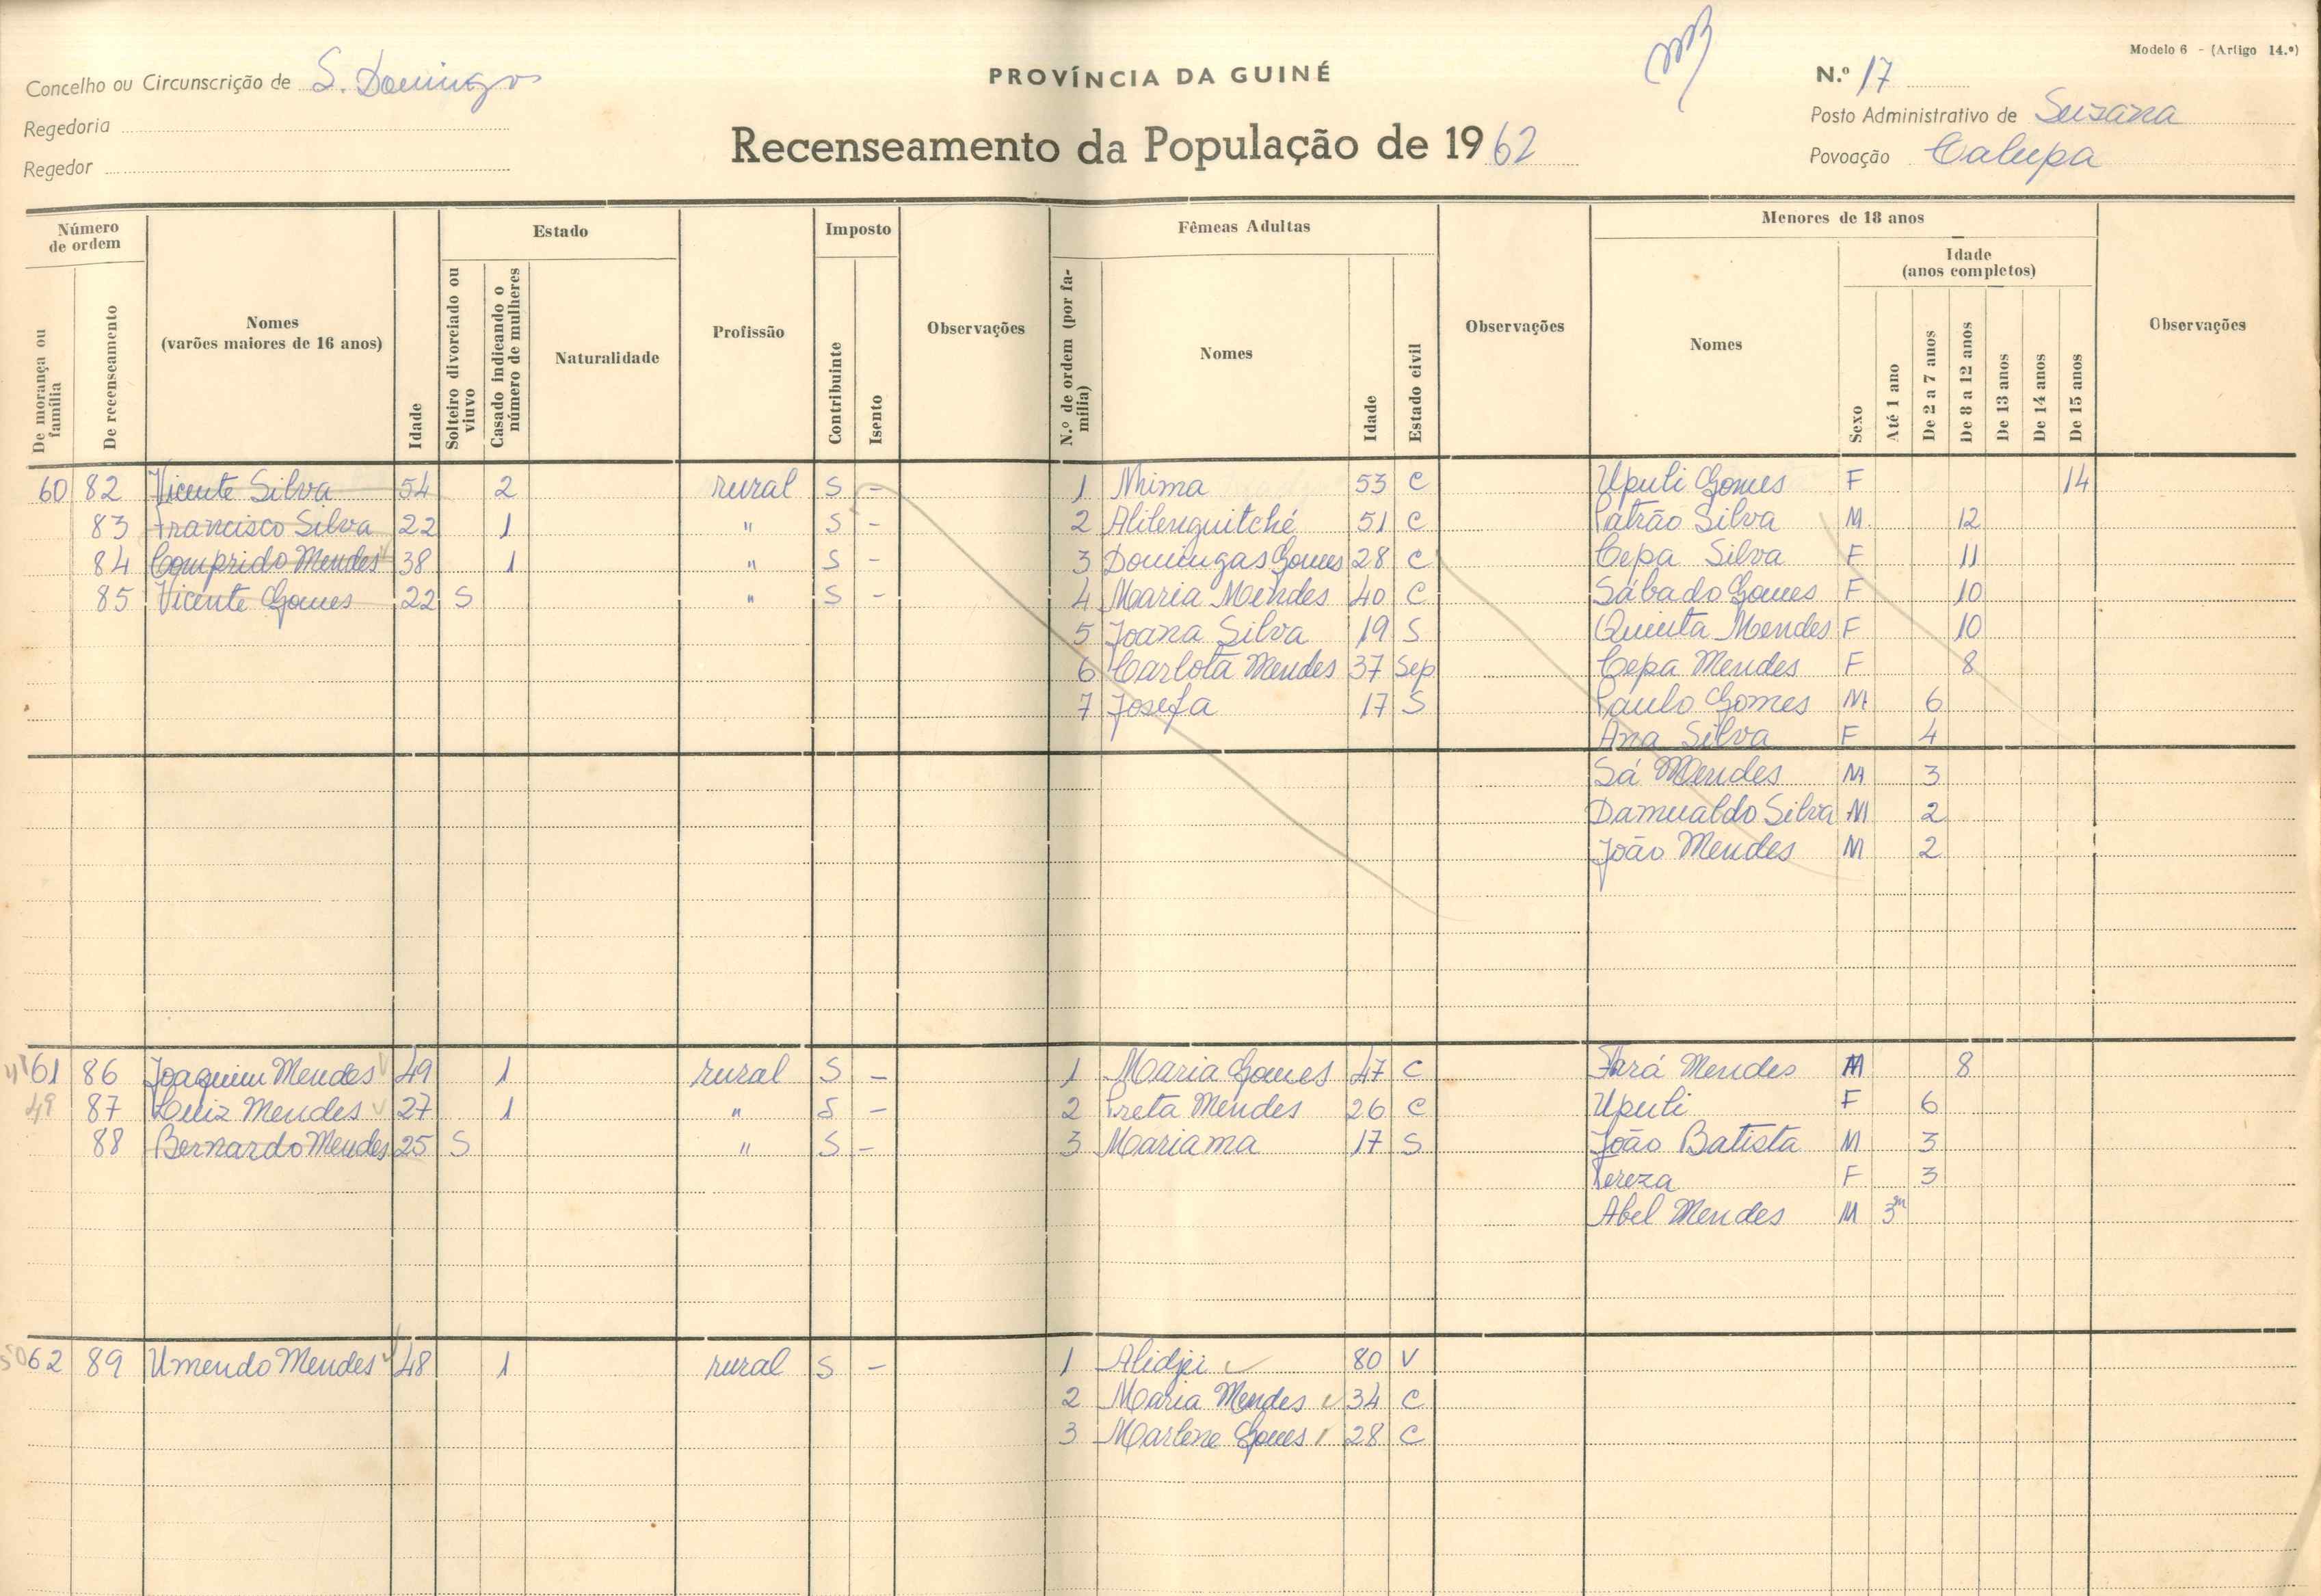 Modelo 6 - (Artigo 14.º)
Concelho ou Circunscrição de S. Domingos
PROVÍNCIA DA GUINÉ
N.º 17
Regedoria
Posto Administrativo de Suzana
Regedor
Recenseamento da População de 1962
Povoação Calupa
Número de ordem
De morança ou família
De recenseamento
Nomes (varões maiores de 16 anos)
Idade
Estado
Solteiro divorciado ou viuvo
Casado indicando o número de mulheres
Naturalidade
Profissão
Imposto
Contribuinte
Isento
Observações
Fêmeas Adultas
N.º de ordem (por família)
Nomes
Idade
Estado civil
Observações
Menores de 18 anos
Nomes
Sexo
Idade (anos completos)
Até 1 ano
De 2 a 7 anos
De 8 a 12 anos
De 13 anos
De 14 anos
De 15 anos
Observações
60 82 Vicente Silva 54 2 rural S - 1 Nhima 53 C Upuli Gomes F 14
83 Francisco Silva 22 1 " S - 2 Alitenguitché 51 C Patrão Silva M 12
84 Comprido Mendes 38 1 " S - 3 Domingas Gomes 28 C Cepa Silva F 11
85 Vicente Gomes 22 S " S - 4 Maria Mendes 40 C Sábado Gomes F 10
5 Joana Silva 19 S Quinta Mendes F 10
6 Carlota Mendes 37 Sep Cepa Mendes F 8
7 Josefa 17 S Paulo Gomes M 6
Ana Silva F 4
Sá Mendes M 3
Damualdo Silva M 2
João Mendes M 2
61 86 Joaquim Mendes 49 1 rural S - 1 Maria Gomes 47 C Fará Mendes M 8
49 87 Luiz Mendes 27 1 " S - 2 Preta Mendes 26 C Upuli F 6
88 Bernardo Mendes 25 S " S - 3 Mariama 17 S João Batista M 3
Tereza F 3
Abel Mendes M 3m
50 62 89 Umendo Mendes 48 1 rural S - 1 Alidjei 80 V
2 Maria Mendes 34 C
3 Marlene Gomes 28 C